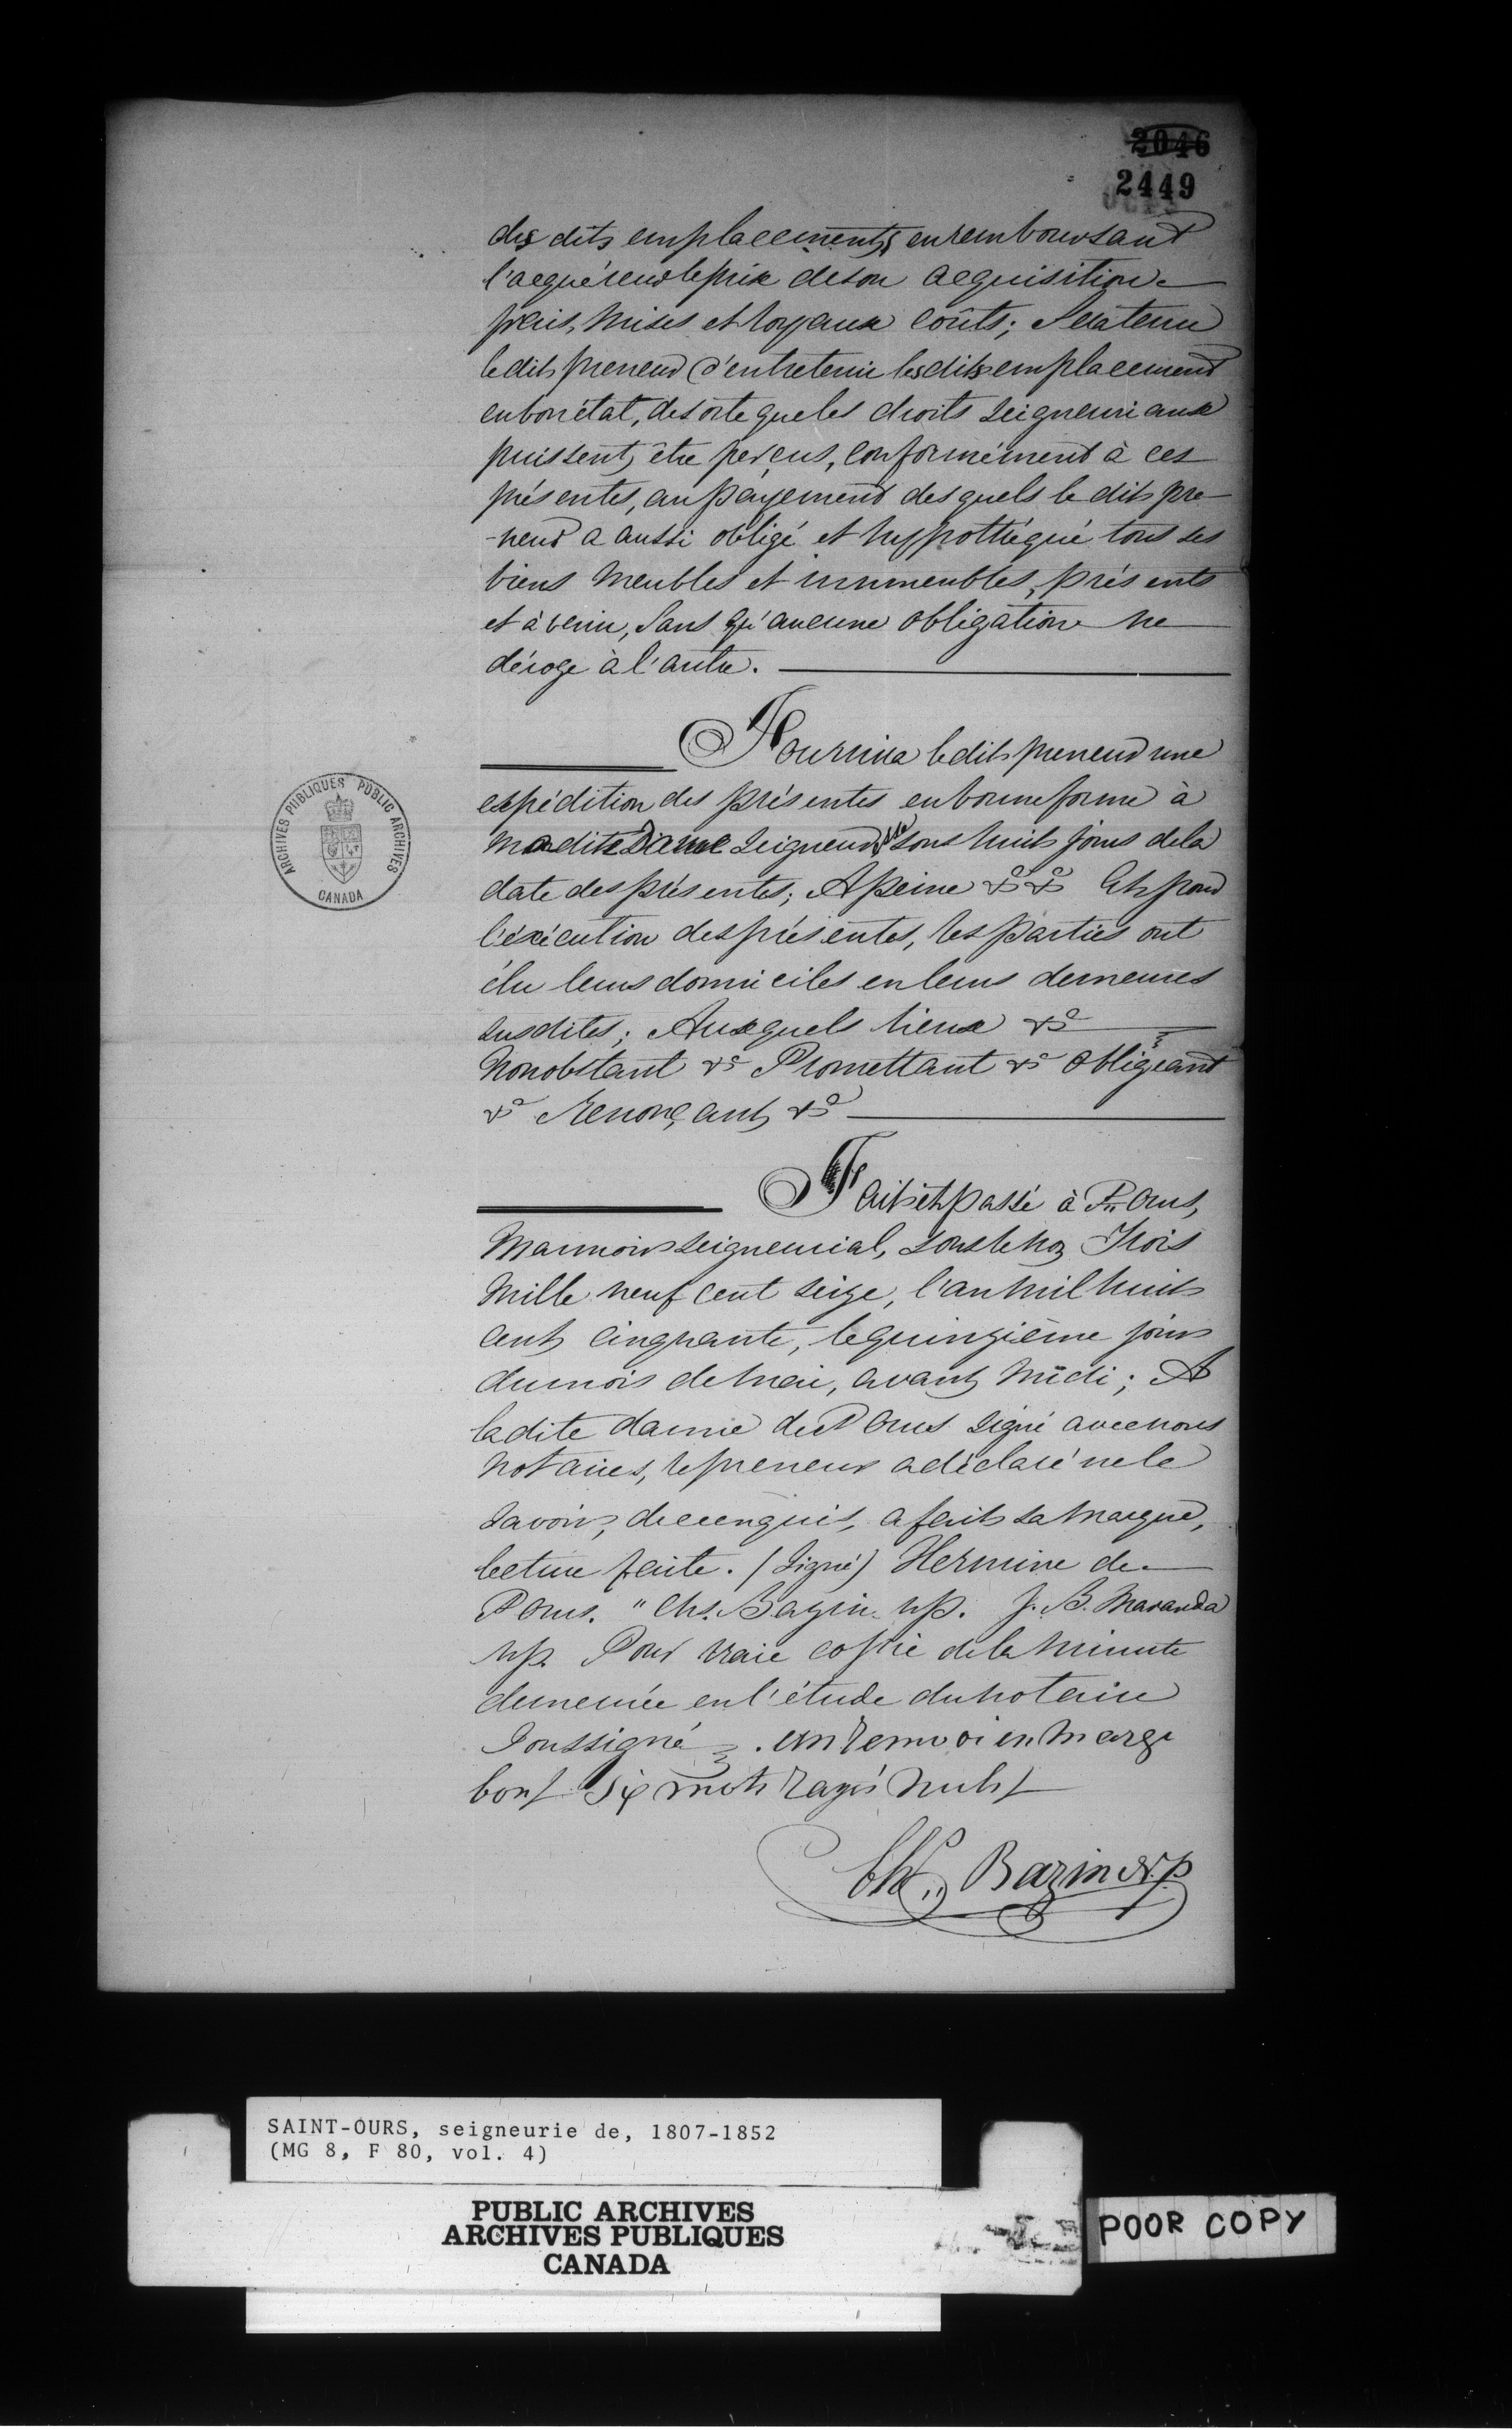 2046
2449
des dits emplacements, en remboursant
l'acquéreur le prix de son acquisition
frais, mises et loyaux coûts; Sera tenu
le dit preneur d'entretenir les dits emplacement
en bon état, de sorte que les droits seigneuriaux
puissent être perçus, conformément à ces
présentes, au payement desquels le dit pre-
-neur a aussi obligé et hyppothéqué tous ses
biens meubles et immeubles, présents
et à venir, Sans qu'aucune obligation ne
déroge à l'autre.
Fournira le dit preneur une
expédition des présentes en bonne forme à
madite Dame Seigneur sous huit jours de la
date des présentes; A peine &ª &ª Et pour
l'éxécution des présentes, les parties ont
élu leurs domiciles en leurs demeures
susdites; Auxquels lieux &ª
Nonobstant &ª Promettant &ª Obligeant
&ª Renonçant &ª
Fait et passé à St. Ours,
Mannoir Seigneurial, sous le No. Trois
Mille neuf cent seize, l'an mil huit
cent cinquante, le quinzième jour
du mois de mai, avant midi; A
la dite dame de St Ours signé avec nous
Notaires, le preneur a déclaré ne le
savoir, de ce enquis, a fait sa marque,
lecture faite. (Signé) Hermine de
St Ours. " Chs. Bazin. np. J. B. Maranda
np. Pour vraie copie de la minute
demeurée en l'étude du notaire
Soussigné. un renvoi en marge
bon/ Six mots rayés nuls/
Chs,, Bazin N.p
ARCHIVES PUBLIQUES PUBLIC ARCHIVES
CANADA
SAINT-OURS, seigneurie de, 1807-1852
(MG 8, F 80, vol. 4)
PUBLIC ARCHIVES
ARCHIVES PUBLIQUES
CANADA
POOR COPY